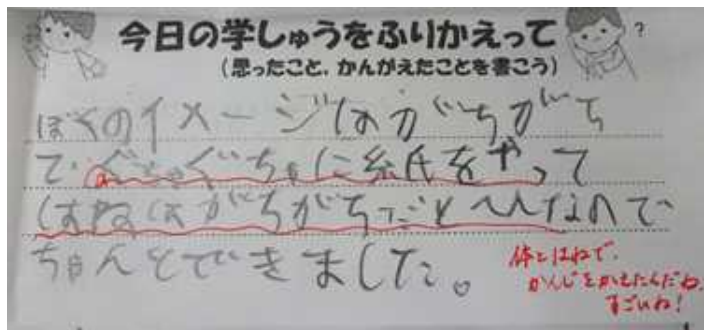 今日の学しゅうをふりかえって
(思ったこと、かんがえたことを書こう)
?
ぼくのイメージはがちがち
で、ぐちゃぐちゃに紙をやって
はねはがちがちだとへんなので
ちゃんとできました。
体とはねで、
かんじをかえたんだね。
すごいね!